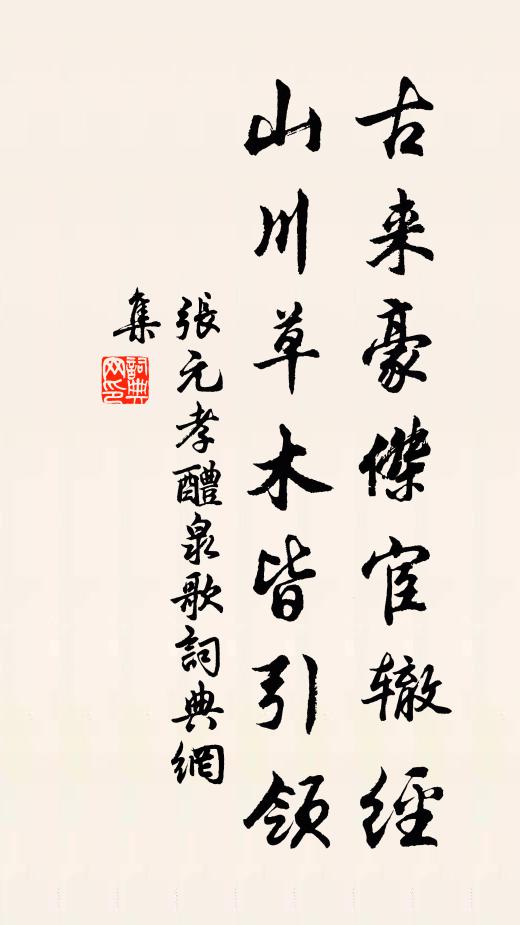 古来豪傑宦辙經
山川草木皆引領
張元孝醴泉歌詞典網
集
詞典
网印